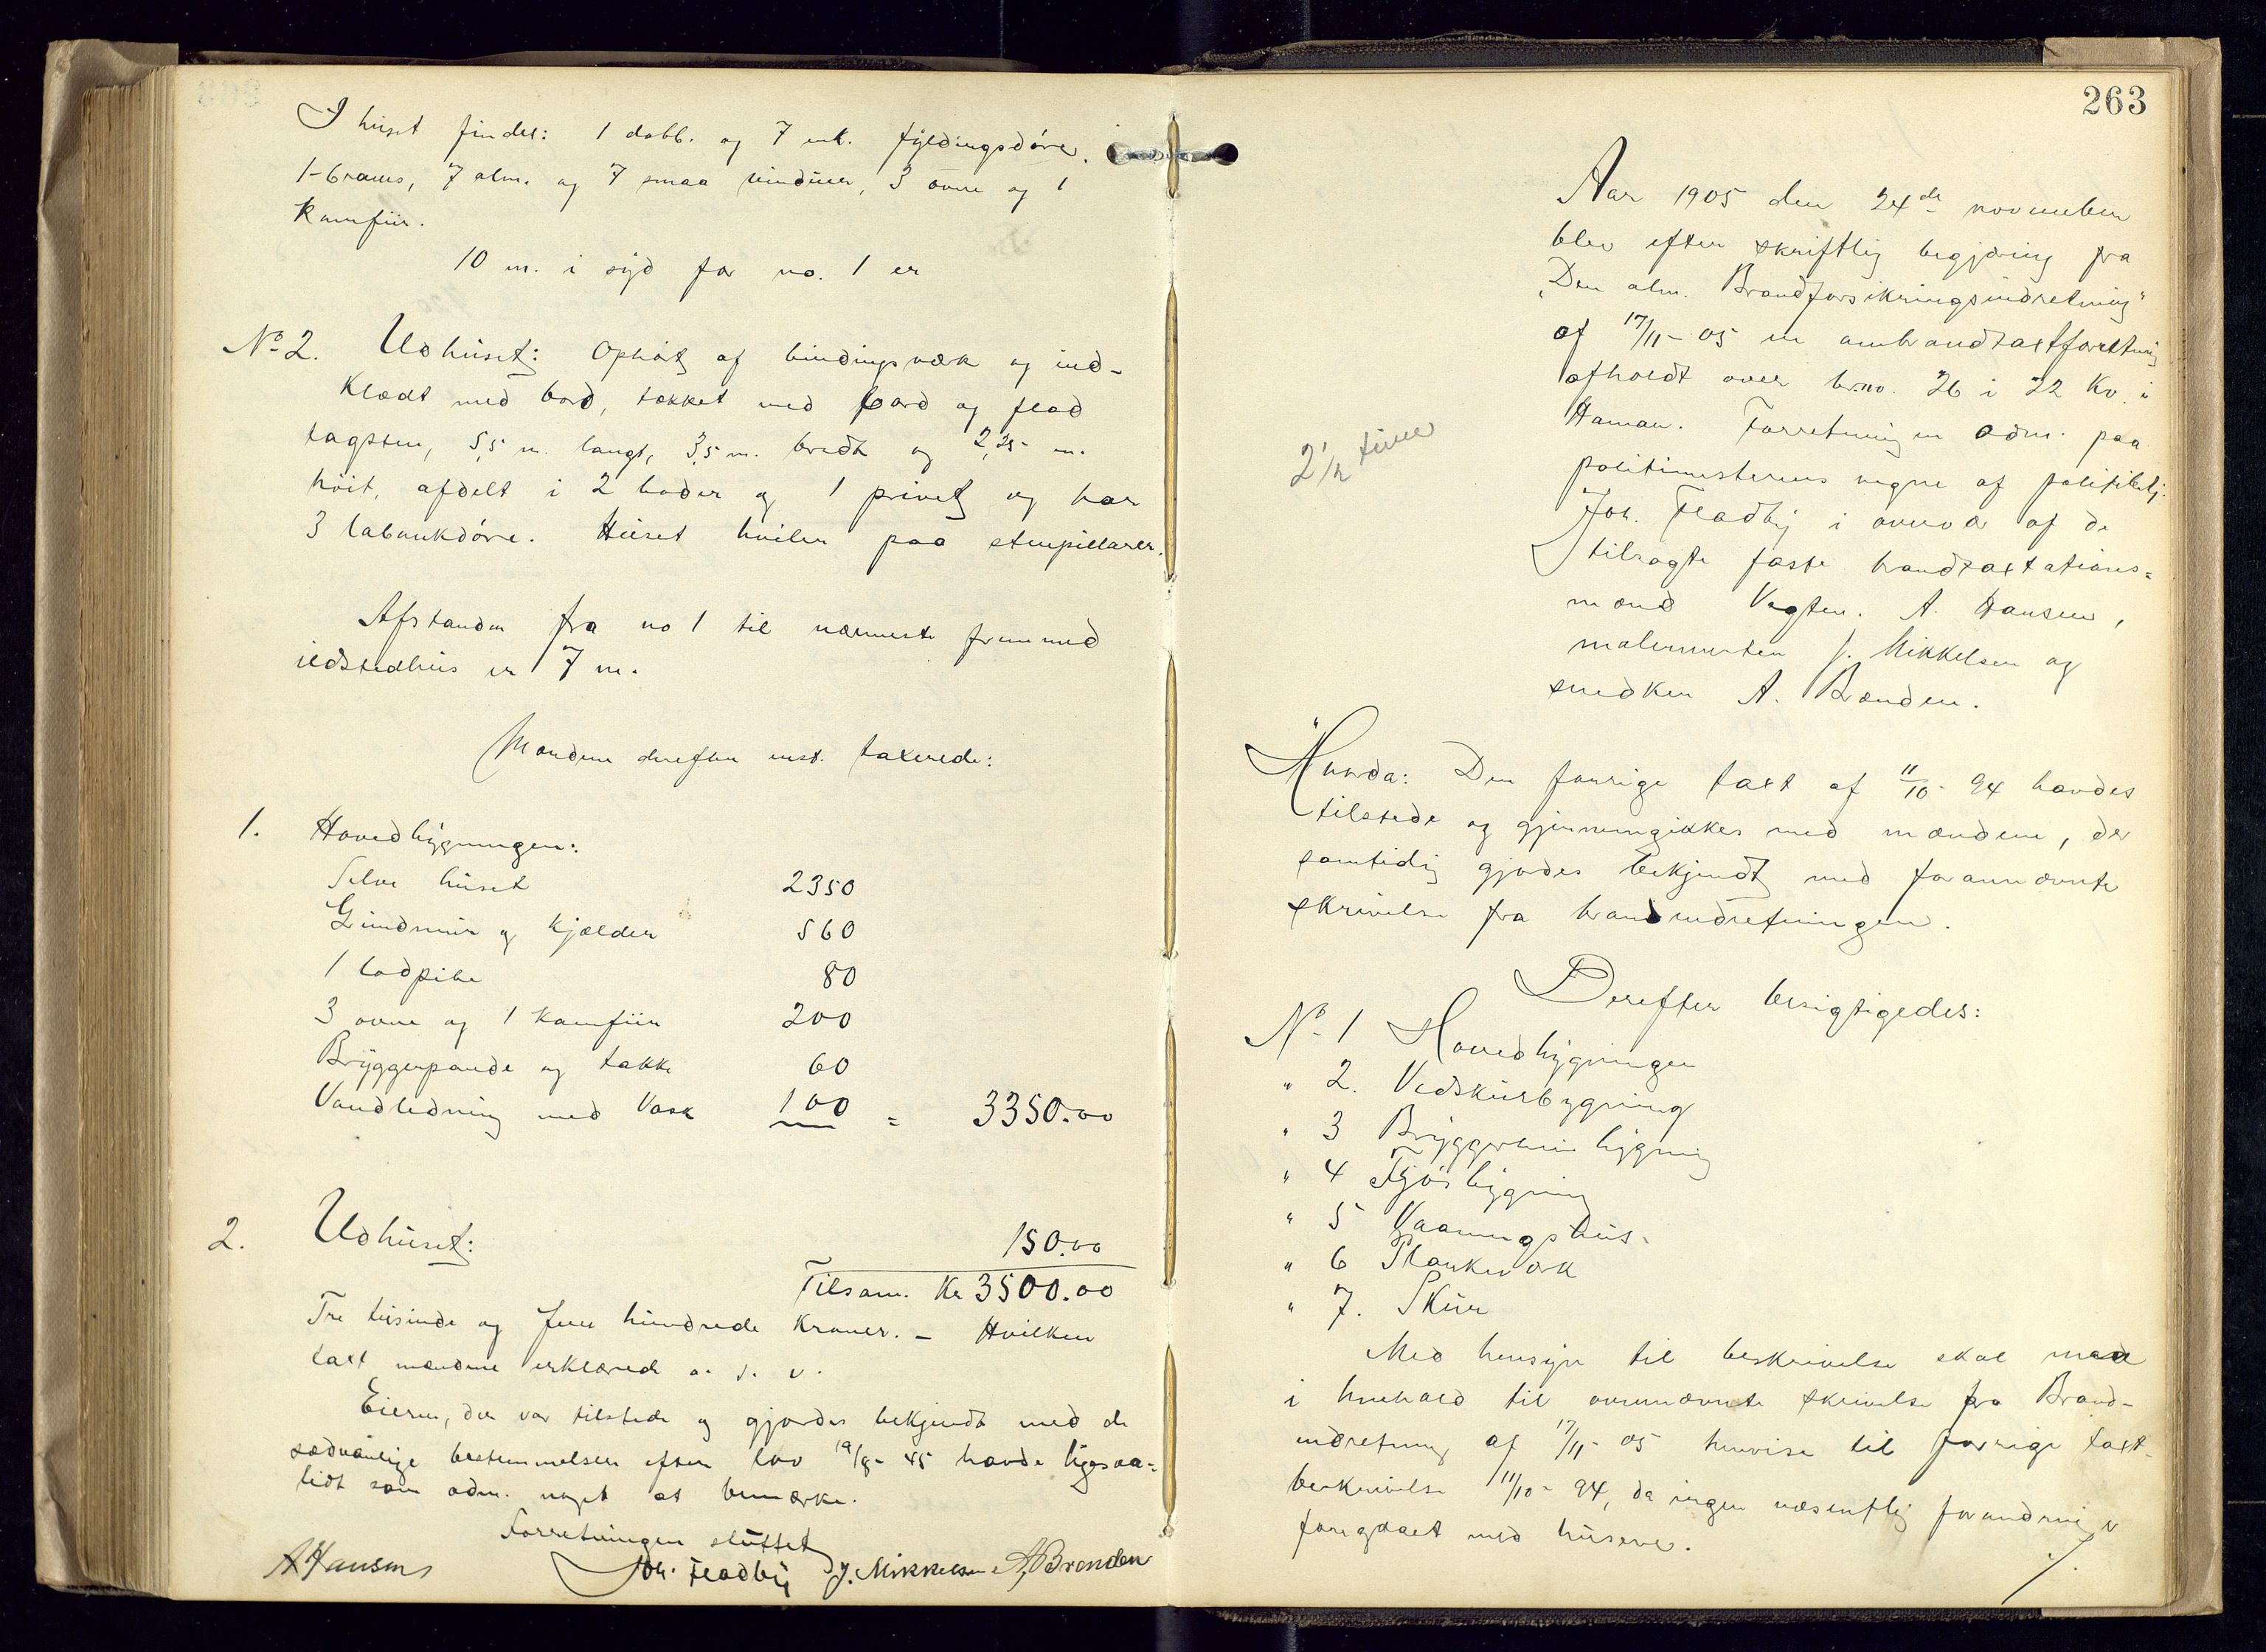 I huset findes: 1 dobb. og 7 enk. fyldingsdøre,
1-6rams, 7 alm. og 7 smaa vinduer, 3 ovne og 1
Kamfür.
10 m. i syd for no. 1 er
No 2. Udhuset: Opført af bindingsværk og ind-
klædt med bord, tækket med bord og flad
tagsten, 5,5 m. langt, 3,5 m. bredt og 2,25 m.
høit, afdelt i 2 boder og 1 privet og har
3 labankdøre. Huset hviler paa stenpillarer.
Afstanden fra no 1 til nærmeste fremmed
ildstedhus er 7 m.
Mændene derefter enst. taxerede:
1. Hovedbygningen:
Selve huset 2350
Grundmur og kjælder 560
1 lodpibe 80
3 ovne og 1 kamfür 200
Bryggerpande og takke 60
Vandledning med Vask 100 = 3350.00
2. Udhuset: 150.00
Tilsam. Kr 3500.00
Tre tusinde og fem hundrede Kroner. – Hvilken
taxt mændene erklærede o. s. v.
Eieren, der var tilstede og gjordes bekjendt med de
sædvanlige bestemmelser efter lov 19/8- 45 havde ligesaa-
lidt som adm. noget at bemærke.
Forretningen sluttet
A Hansen Joh. Fladby J. Mikkelsen A. Brenden
263
Aar 1905 den 24de november
blev efter skriftlig begjæring fra
„Den alm. Brandforsikringsindretning"
af 17/11- 05 en ombrandtaxtforretning
afholdt over brno. 26 i 22 Kv. i
Hamar. Forretningen adm. paa
2 1/2 time
politimesterens vegne af politibetj.
Joh. Fladby i overvær af de
tilsagte faste brandtaxtations=
mænd Vagtm. A. Hansen,
malermester J. Mikkelsen og
snedker A. Brænden.
Hvorda: Den forrige taxt af 11/10- 94 havdes
tilstede og gjennemgikkes med mændene, der
samtidig gjordes bekjendt med forannævnte
skrivelse fra brandindretningen.
Derefter besigtigedes:
No 1 Hovedbygningen
" 2. Vedskurbygning
" 3 Bryggerhusbygning
" 4 Fjøsbygning
" 5 Vaaningshus.
" 6 Plankeværk
" 7. Skur
Med hensyn til beskrivelse skal man
i henhold til ovennævnte skrivelse fra Brand-
indretning af 17/11- 05 henvise til forrige taxt-
beskrivelse 11/10- 94, da ingen væsentlig forandring er
foregaaet med husene.
./.